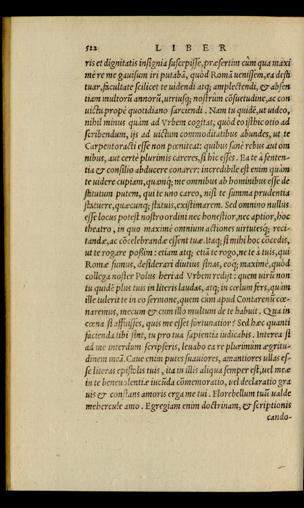 512 LIBER
ris et dignitatis insignia suscepisse, præsertim cùm qua maxi
mè re me gauisum iri putabã, quòd Romã uenissem, ea desti
tuar, facultate scilicet te uidendi atq; amplectendi, & absen
tiam multorũ annorũ, utriusq; nostrum cõsuetudine, ac con
uictu propè quotidiano sarciendi. Nam tu quidẽ, ut uideo,
nihil minus quàm ad Vrbem cogitas, quòd eo isthic otio ad
scribendum, ijs ad uictum commoditatibus abundes, ut te
Carpentoracti esse non pœniteat: quibus sanè rebus aut om
nibus, aut certè plurimis careres, si hic esses. Ea te à senten-
tia & consilio abducere conarer: incredibile est enim quàm
te uidere cupiam, quanq; me omnibus ab hominibus esse de
stitutum putem, qui te uno careo, nisi te summa prudentia
statuere, quæcunq; statuis, existimarem. Sed omnino nullus
esse locus potest nostro ordini nec honestior, nec aptior, hoc
theatro, in quo maximè omnium actiones uirtutesq; reci-
tandæ, ac cõcelebrandæ essent tuæ. Itaq; si mihi hoc cõcedis,
ut te rogare possim: etiam atq; etiã te rogo, ne te à tuis, qui
Romæ sumus, desiderari diutius sinas, eoq; maximè, quòd
collega noster Polus heri ad Vrbem redijt: quem uirũ non
tu quidẽ plus tuis in literis laudas, atq; in cœlum fers, quàm
ille tulerit te in eo sermone, quem cum apud Contarenũ cœ-
naremus, mecum & cum illo multum de te habuit. Qua in
cœna si affuisses, quis me esset fortunatior? Sed hæc quanti
facienda tibi sint, tu pro tua sapientia iudicabis. Interea si
ad me interdum scripseris, leuabo ea re plurimùm ægritu-
dinem meã. Caue enim putes suauiores, amantiores ullas es-
se literas epistolis tuis, ita in illis aliqua semper est, uel meæ
in te beneuolentiæ iucũda cõmemoratio, uel declaratio gra
uis & constans amoris erga me tui. Florebellum tuũ ualde
mehercule amo. Egregiam enim doctrinam, & scriptionis
cando-